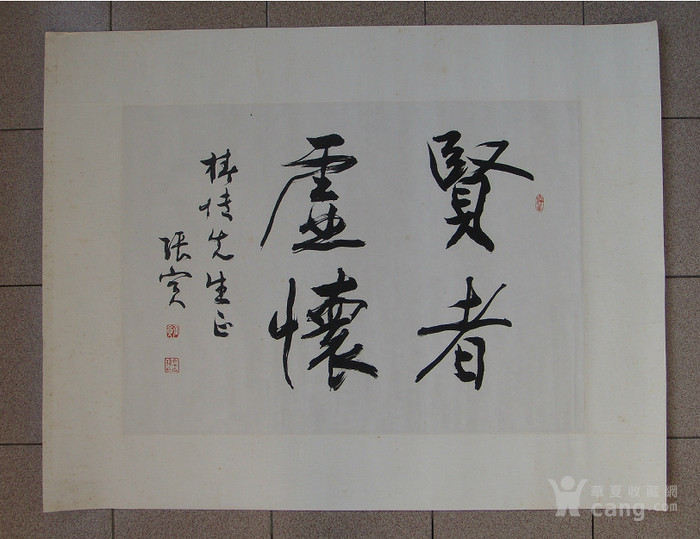 賢者
虛懷
先生正
張寔
華夏收藏網
cang.com